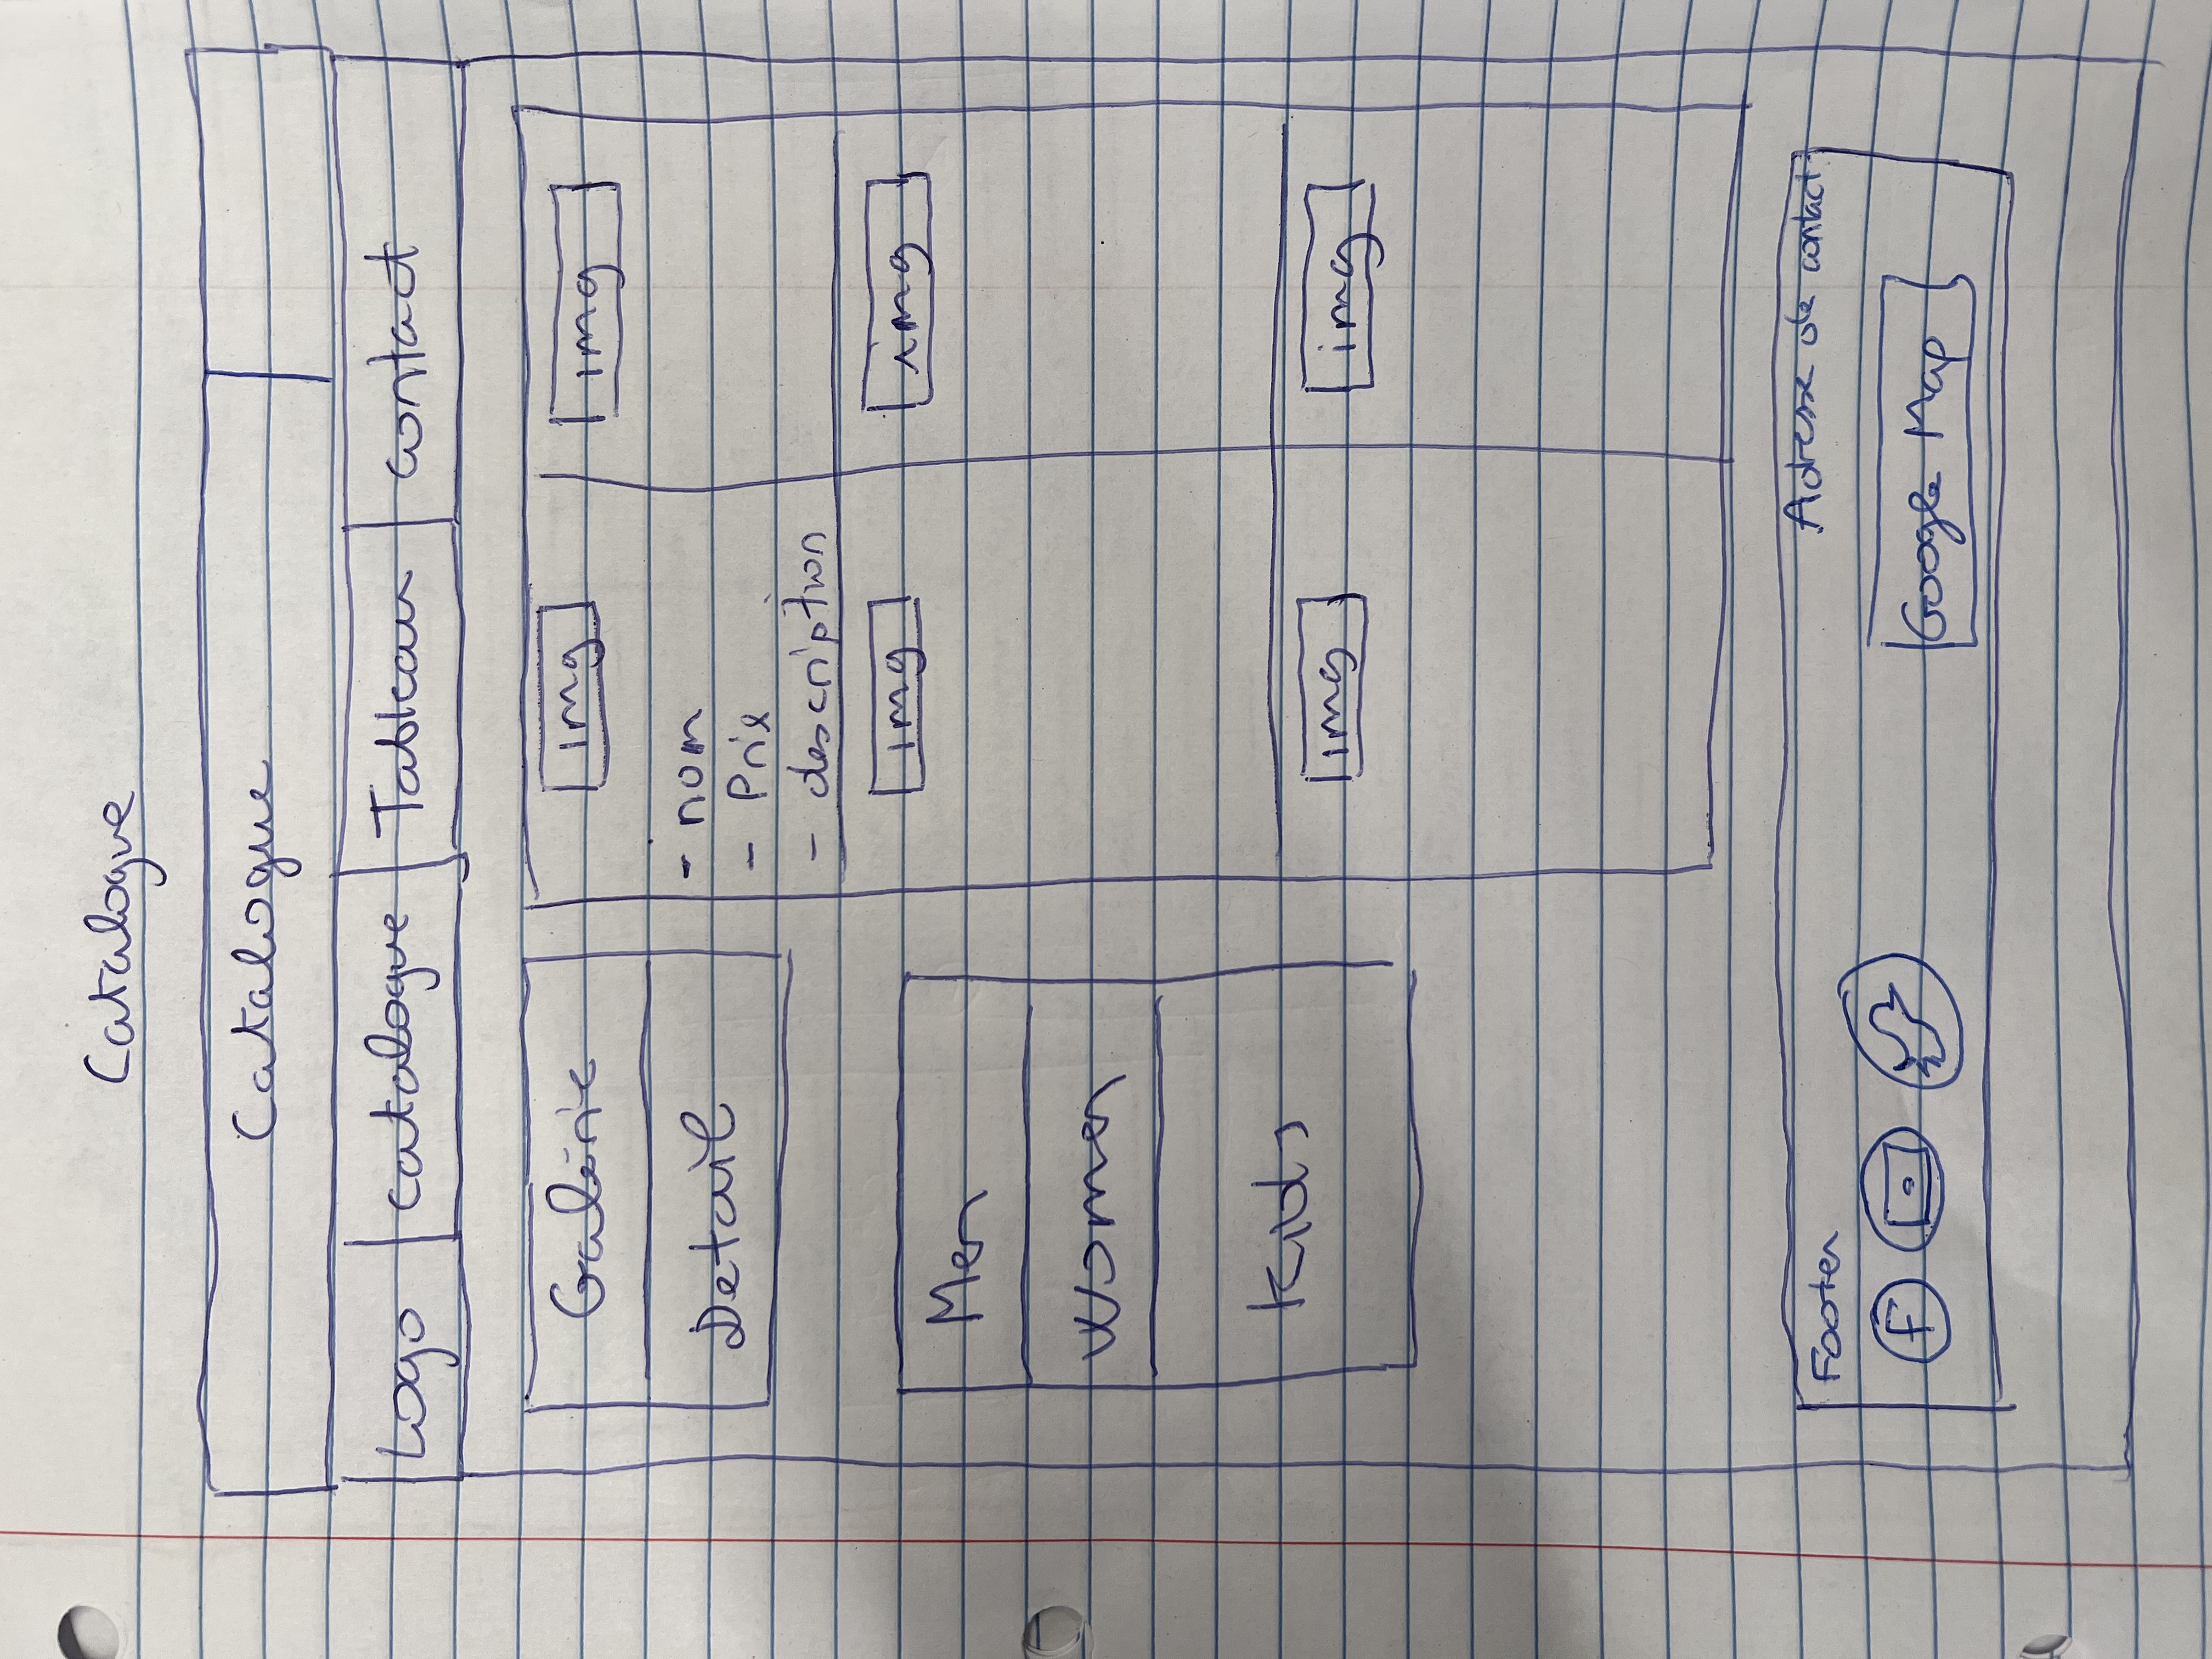 Catalogue
Catalogue
Logo catalogue Tableau contact
Galérie
Detail
img img
- nom
- Prix
- description
img img
Men
Women
Kids
img img
Footer
Adresse de contact
F
Google Map